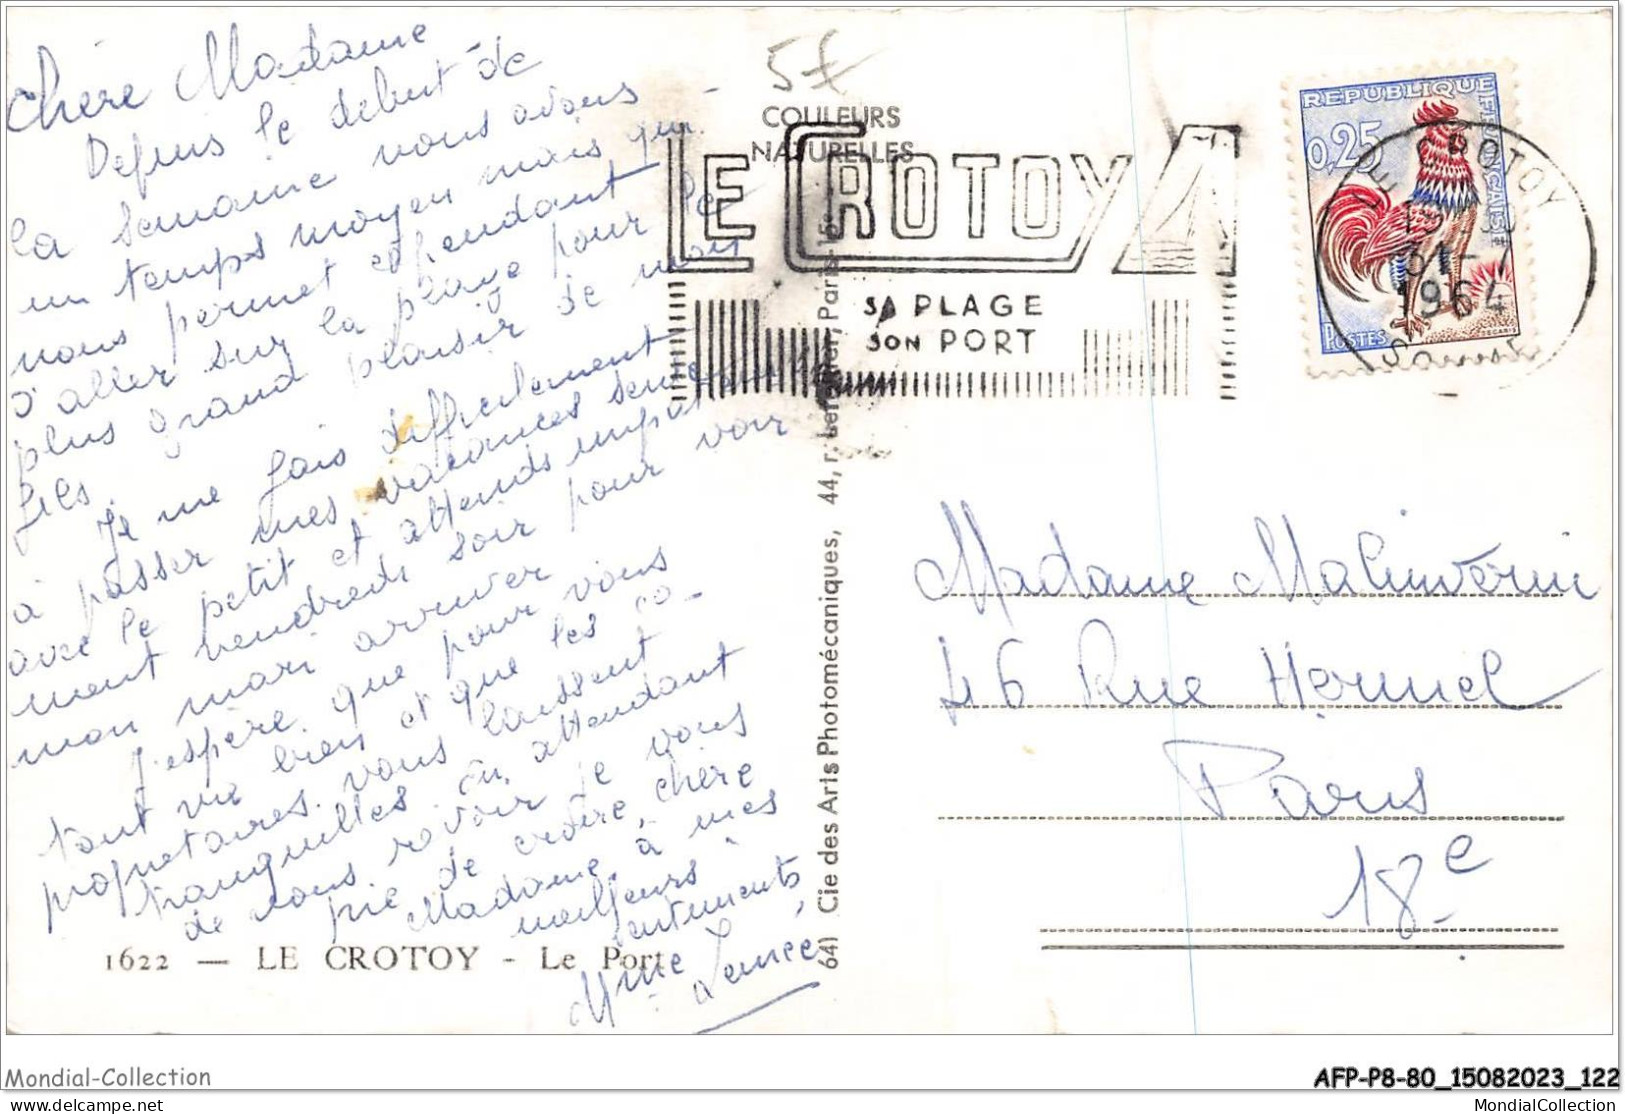 Chère Madame
Depuis le début de
la semaine nous avons
un temps moyen mais qui
nous permet cependant
d'aller sur la plage pour le
plus grand plaisir de mon
fils.
Je me fais difficilement
à passer mes vacances seule
avec le petit et attends impatiem
ment vendredi soir pour voir
mon mari arriver
J'espère que pour vous
tout va bien et que les co-
propriétaires vous laissent
tranquilles. En attendant
de vous revoir je vous
prie de croire, chère
Madame, à mes
meilleurs
sentiments
Mme
1622 — LE CROTOY - Le Port
5€
COULEURS
NATURELLES
64) Cie des Arts Photomécaniques, 44, r. Letellier, Paris-15e
LE CROTOY
SA PLAGE
SON PORT
REPUBLIQUE FRANÇAISE
0,25
POSTES
DECARIS
LE CROTOY
31-7
1964
SOMME
Madame Malinverni
46 Rue Hermel
Paris
18e
Mondial-Collection
AFP-P8-80_15082023_122
delcampe.net
MondialCollection